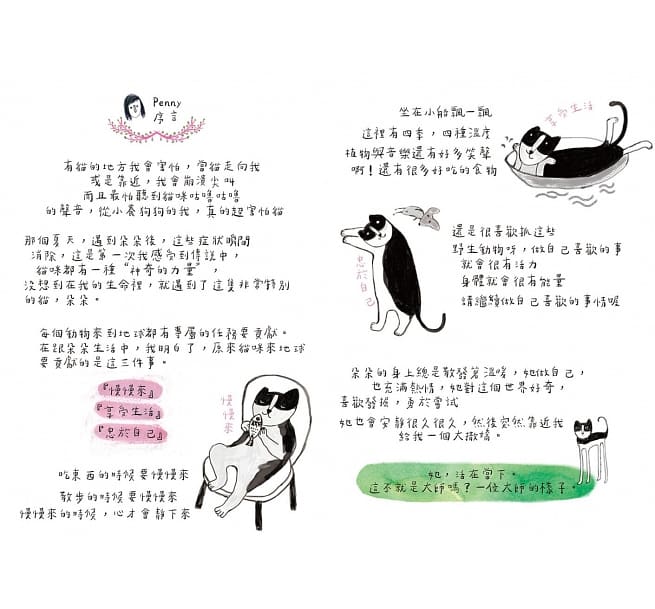 Penny
序言
有貓的地方我會害怕，當貓走向我
或是靠近，我會崩潰尖叫
而且最怕聽到貓咪咕嚕咕嚕
的聲音，從小養狗狗的我，真的超害怕貓
那個夏天，遇到朵朵後，這些症狀瞬間
消除，這是第一次我感受到傳說中，
貓咪都有一種“神奇的力量”，
沒想到在我的生命裡，就遇到了這隻非常特別
的貓，朵朵。
每個動物來到地球都有專屬的任務要貢獻。
在跟朵朵生活中，我明白了，原來貓咪來地球
要貢獻的是這三件事。
『慢慢來』
『享受生活』
『忠於自己』
慢慢來
吃東西的時候要慢慢來
散步的時候要慢慢來
慢慢來的時候，心才會靜下來
坐在小船飄一飄
這裡有四季，四種溫度
植物與音樂還有好多笑聲
啊！還有很多好吃的食物
享受生活
忠於自己
還是很喜歡抓這些
野生動物呀，做自己喜歡的事
就會很有活力
身體就會很有能量
請繼續做自己喜歡的事情喔
朵朵的身上總是散發著溫暖，她做自己，
也充滿熱情，她對這個世界好奇，
喜歡發掘，勇於嘗試
她也會安靜很久很久，然後突然靠近我
給我一個大撒嬌。
她，活在當下。
這不就是大師嗎？一位大師的樣子。